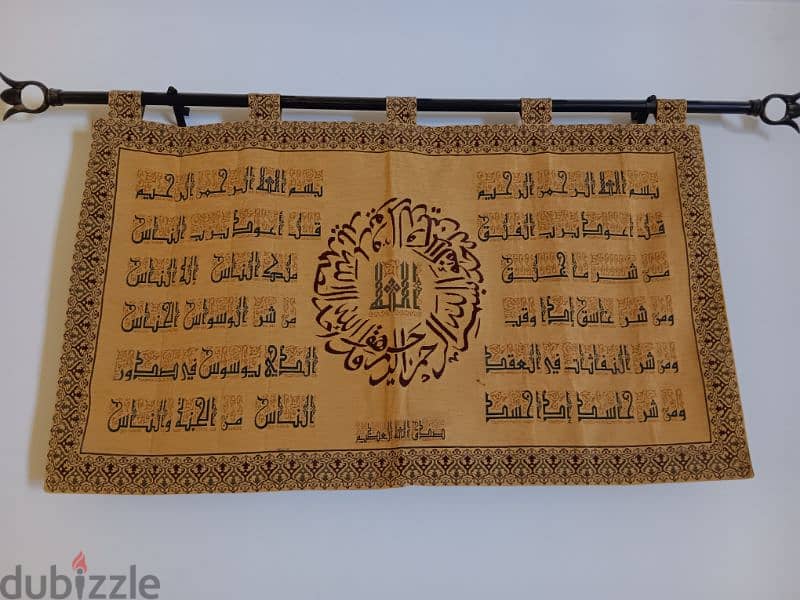 بسم الله الرحمن الرحيم
قل أعوذ برب الفلق
من شر ما خلق
ومن شر غاسق إذا وقب
ومن شر النفاثات في العقد
ومن شر حاسد إذا حسد
بسم الله الرحمن الرحيم
صدق الله العظيم
بسم الله الرحمن الرحيم
قل أعوذ برب الناس
ملك الناس إله الناس
من شر الوسواس الخناس
الذي يوسوس في صدور
الناس من الجنة والناس
dubizzle